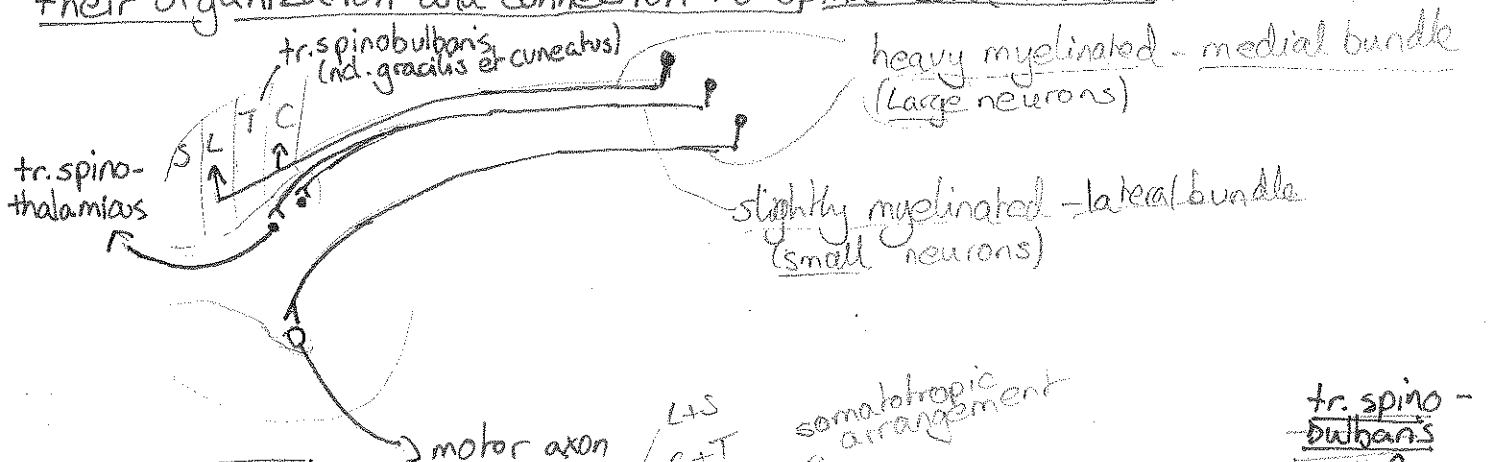 their organization and connection to
tr. spinobulbaris
(nd. gracilis et cuneatus)
heavy myelinated - medial bundle
(Large neurons)
S L T C
tr. spino-
thalamicus
slightly myelinated - lateral bundle
(small neurons)
L+S
C+T
somatotropic
arrangement
motor axon
tr. spino-
bulbaris